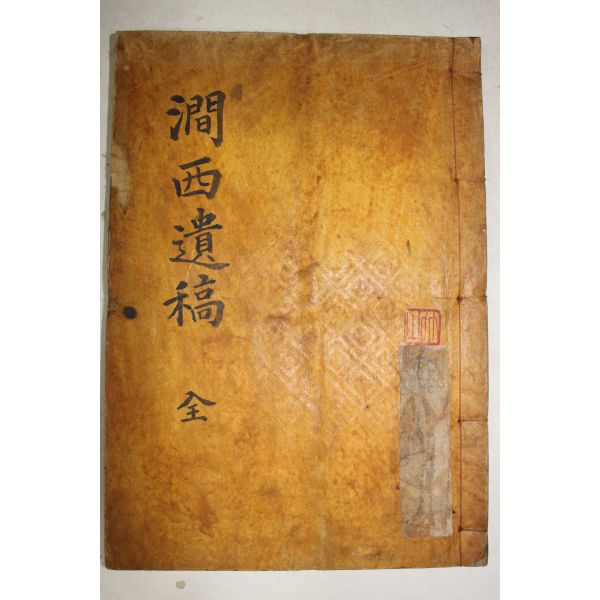 澗西遺稿
全